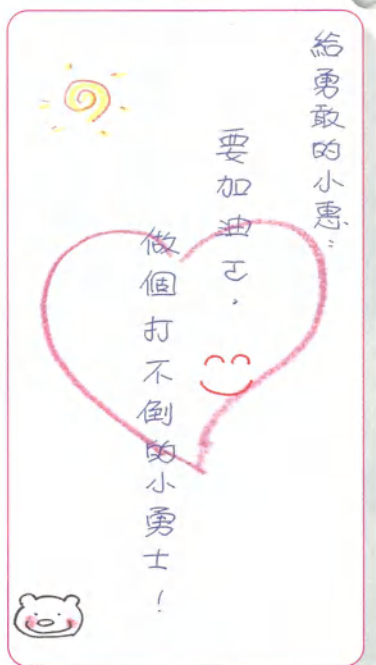 給勇敢的小惠：
要加油ㄛ，
做個打不倒的小勇士！